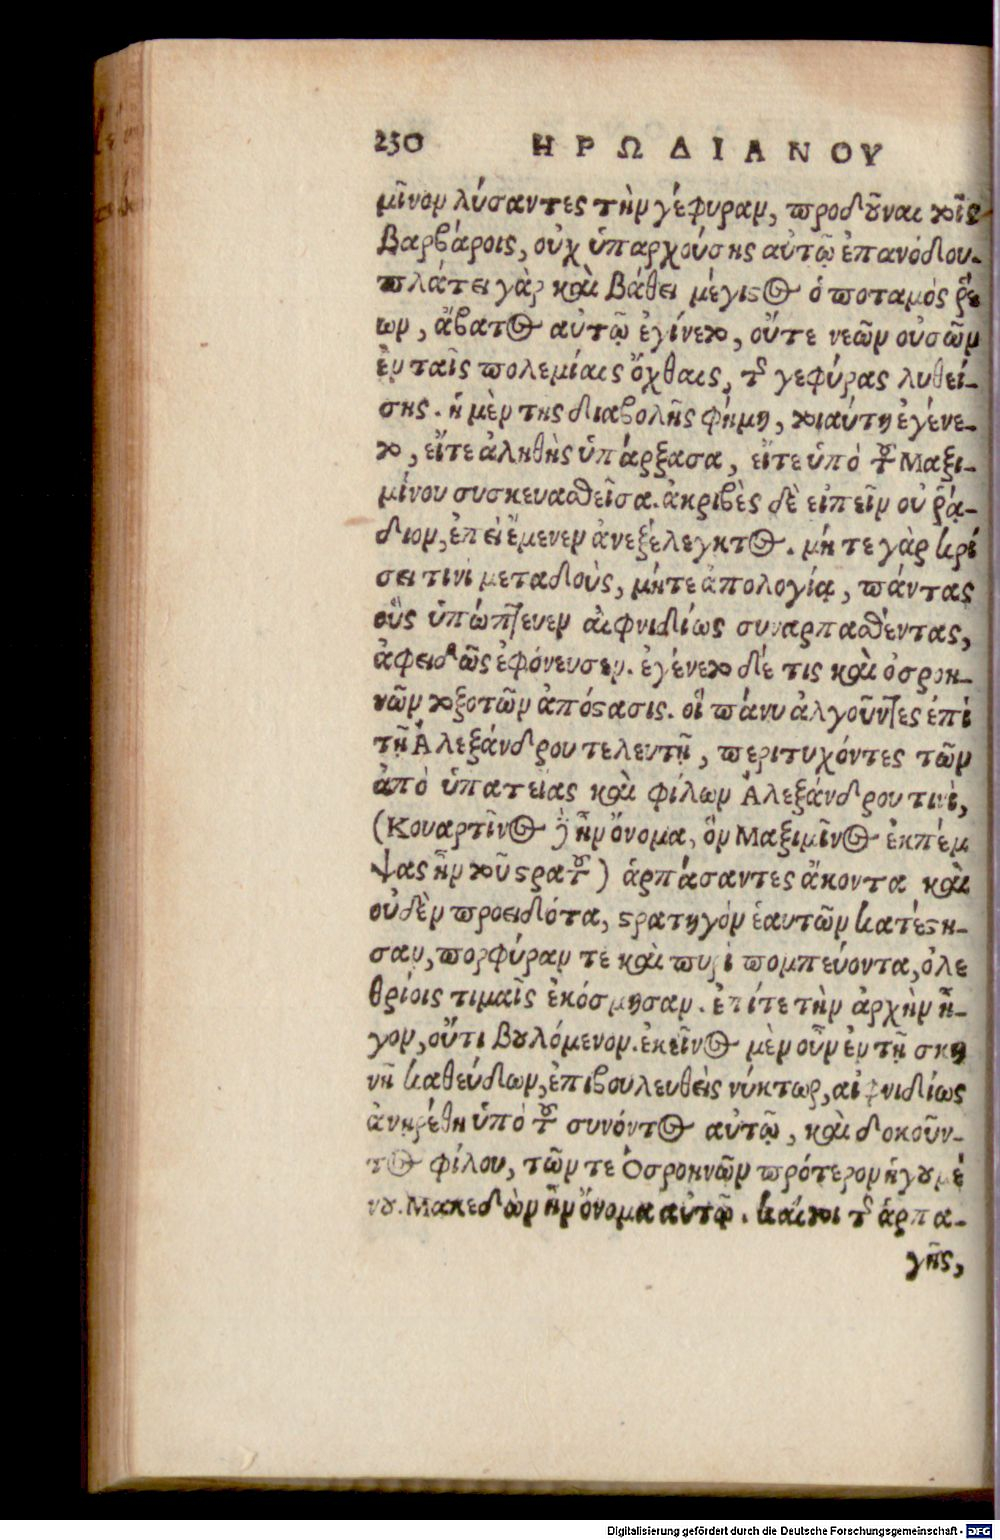 230 ΗΡΩΔΙΑΝΟΥ
μῖνον λύσαντες τὴν γέφυραν, προδοῦναι τοῖς
βαρβάροις, οὐχ ὑπαρχούσης αὐτῷ ἐπανόδου.
πλάτει γὰρ καὶ βάθει μέγιστος ὁ ποταμὸς ῥέ
ων, ἄβατος αὐτῷ ἐγίνετο, οὔτε νεῶν οὐσῶν
ἐν ταῖς πολεμίαις ὄχθαις, τῆς γεφύρας λυθεί-
σης. ἡ μὲν της διαβολῆς φήμη, τοιαύτη ἐγένε-
το, εἴτε ἀληθὴς ὑπάρξασα, εἴτε ὑπὸ τοῦ Μαξι-
μίνου συσκευασθεῖσα. ἀκριβὲς δὲ εἰπεῖν οὐ ῥᾴ-
διον, ἐπεὶ ἔμενεν ἀνεξέλεγκτος. μήτε γὰρ κρί
σει τινὶ μεταδοὺς, μήτε ἀπολογίᾳ, πάντας
οὓς ὑπώπτευεν αἰφνιδίως συναρπασθέντας,
ἀφειδῶς ἐφόνευσεν. ἐγένετο δέ τις καὶ ὀσροη-
νῶν τοξοτῶν ἀπόστασις. οἳ πάνυ ἀλγοῦντες ἐπὶ
τῇ Ἀλεξάνδρου τελευτῇ, περιτυχόντες τῶν
ἀπὸ ὑπατείας καὶ φίλων Ἀλεξάνδρου τινὶ,
(Κουαρτῖνος δὲ ἦν ὄνομα, ὃν Μαξιμῖνος ἐκπέμ
ψας ἦν τοῦ στρατοῦ) ἁρπάσαντες ἄκοντα καὶ
οὐδὲν προειδότα, στρατηγὸν ἑαυτῶν κατέστη-
σαν, πορφύραν τε καὶ πυρὶ πομπεύοντα, ὀλε
θρίοις τιμαῖς ἐκόσμησαν. ἐπί τε τὴν ἀρχὴν ἦ-
γον, οὔτι βουλόμενον. ἐκεῖνος μὲν οὖν ἐν τῇ σκη
νῇ καθεύδων, ἐπιβουλευθεὶς νύκτωρ, αἰφνιδίως
ἀνῃρέθη ὑπὸ τοῦ συνόντος αὐτῷ, καὶ δοκοῦν-
τος φίλου, τῶν τε Ὀσροηνῶν πρότερον ἡγουμέ
νου. Μακεδὼν ἦν ὄνομα αὐτῷ. καίτοι τῆς ἁρπα-
γῆς,
Digitalisierung gefördert durch die Deutsche Forschungsgemeinschaft - DFG